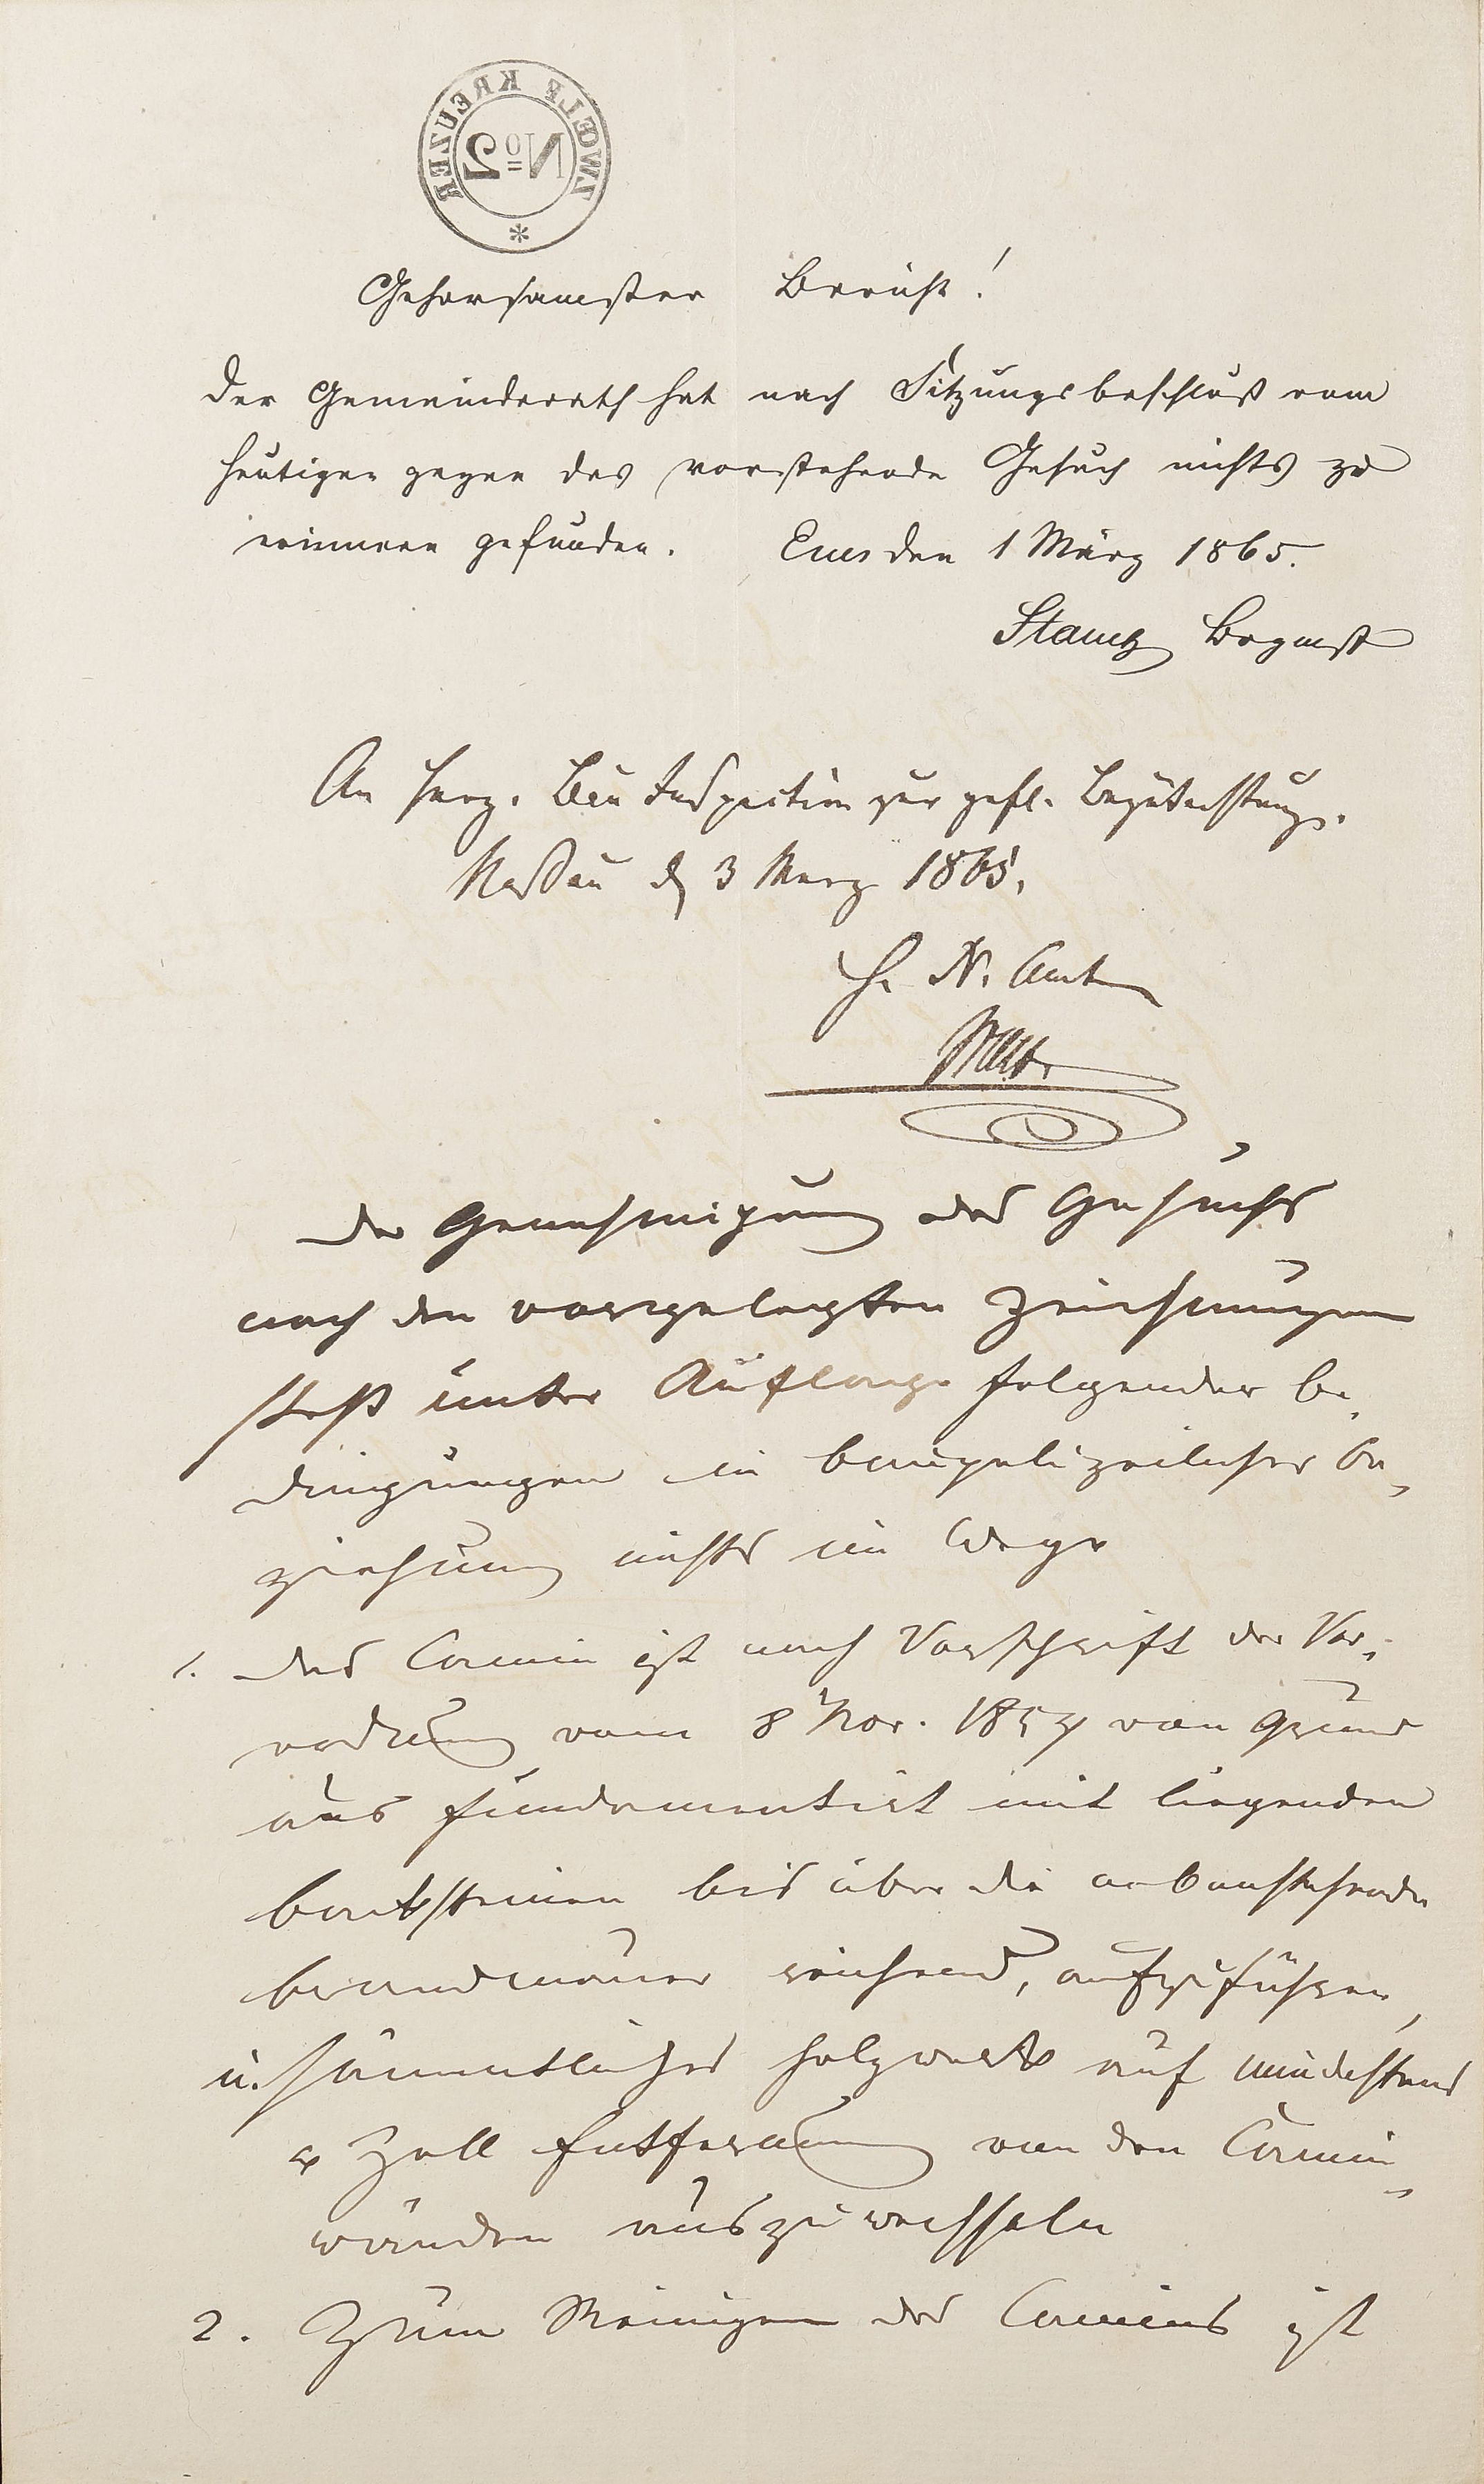 ZWŒLF KREUZER
No 2
Gehorsamster Bericht!
Der Gemeinderath hat nach Sitzungsbeschluß vom
heutigen gegen das vorstehende Gesuch nichts zu
erinnern gefunden. Ems den 1 März 1865.
Stamm Brgmst
An Herz. Bau Inspection zur gefl. Begutachtung.
Nassau d 3 Merz 1865.
H. N. Amt
Der Genehmigung des Gesuchs
nach den vorgelegten Zeichnungen
steht unter Auflage folgender Be-
dingungen in baupolizeilicher Be-
ziehung nichts im Wege
1. Das Camin ist nach Vorschrift der Ver-
ordnung vom 8 Nov. 1854 von Grund
aus fundamentirt mit liegenden
Backsteinen bis über die nebenstehende
Brandmauer reichend, aufzuführen,
u. sämmtliches Holzwerk auf mindestens
Zoll Entfernung von den Camin-
wänden auszuwechseln
2. Zum Reinigen des Camins ist